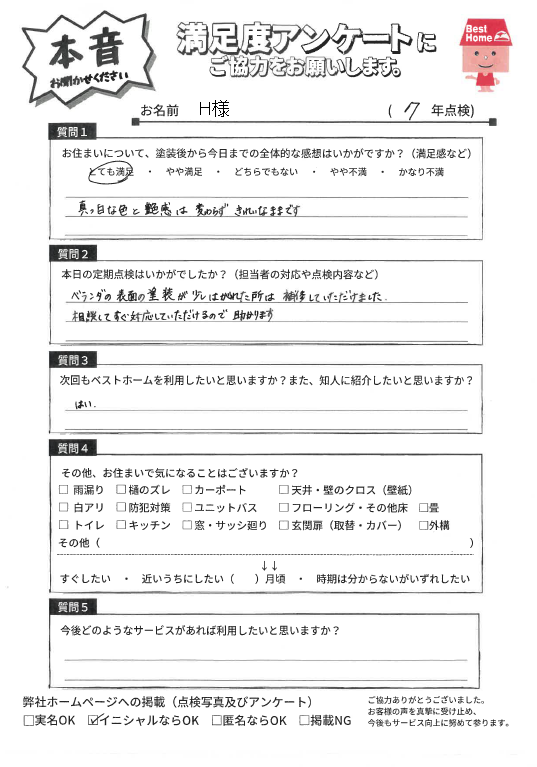 本音
お聞かせください
満足度アンケートに
ご協力をお願いします。
Best
Home
お名前 H様 ( 7 年点検)
質問1
お住まいについて、塗装後から今日までの全体的な感想はいかがですか？（満足感など）
とても満足 ・ やや満足 ・ どちらでもない ・ やや不満 ・ かなり不満
真っ白な色と艶感は変わらずきれいなままです
質問2
本日の定期点検はいかがでしたか？（担当者の対応や点検内容など）
ベランダの表面の塗装が少しはがれた所は補修していただけました.
相談してすぐ対応していただけるので助かります
質問3
次回もベストホームを利用したいと思いますか？また、知人に紹介したいと思いますか？
はい.
質問4
その他、お住まいで気になることはございますか？
□ 雨漏り □ 樋のズレ □ カーポート □ 天井・壁のクロス（壁紙）
□ 白アリ □ 防犯対策 □ ユニットバス □ フローリング・その他床 □畳
□ トイレ □ キッチン □ 窓・サッシ廻り □ 玄関扉（取替・カバー） □外構
その他（ ）
↓↓
すぐしたい ・ 近いうちにしたい（ ）月頃 ・ 時期は分からないがいずれしたい
質問5
今後どのようなサービスがあれば利用したいと思いますか？
弊社ホームページへの掲載（点検写真及びアンケート）
□実名OK ☑イニシャルならOK □匿名ならOK □掲載NG
ご協力ありがとうございました。
お客様の声を真摯に受け止め、
今後もサービス向上に努めて参ります。